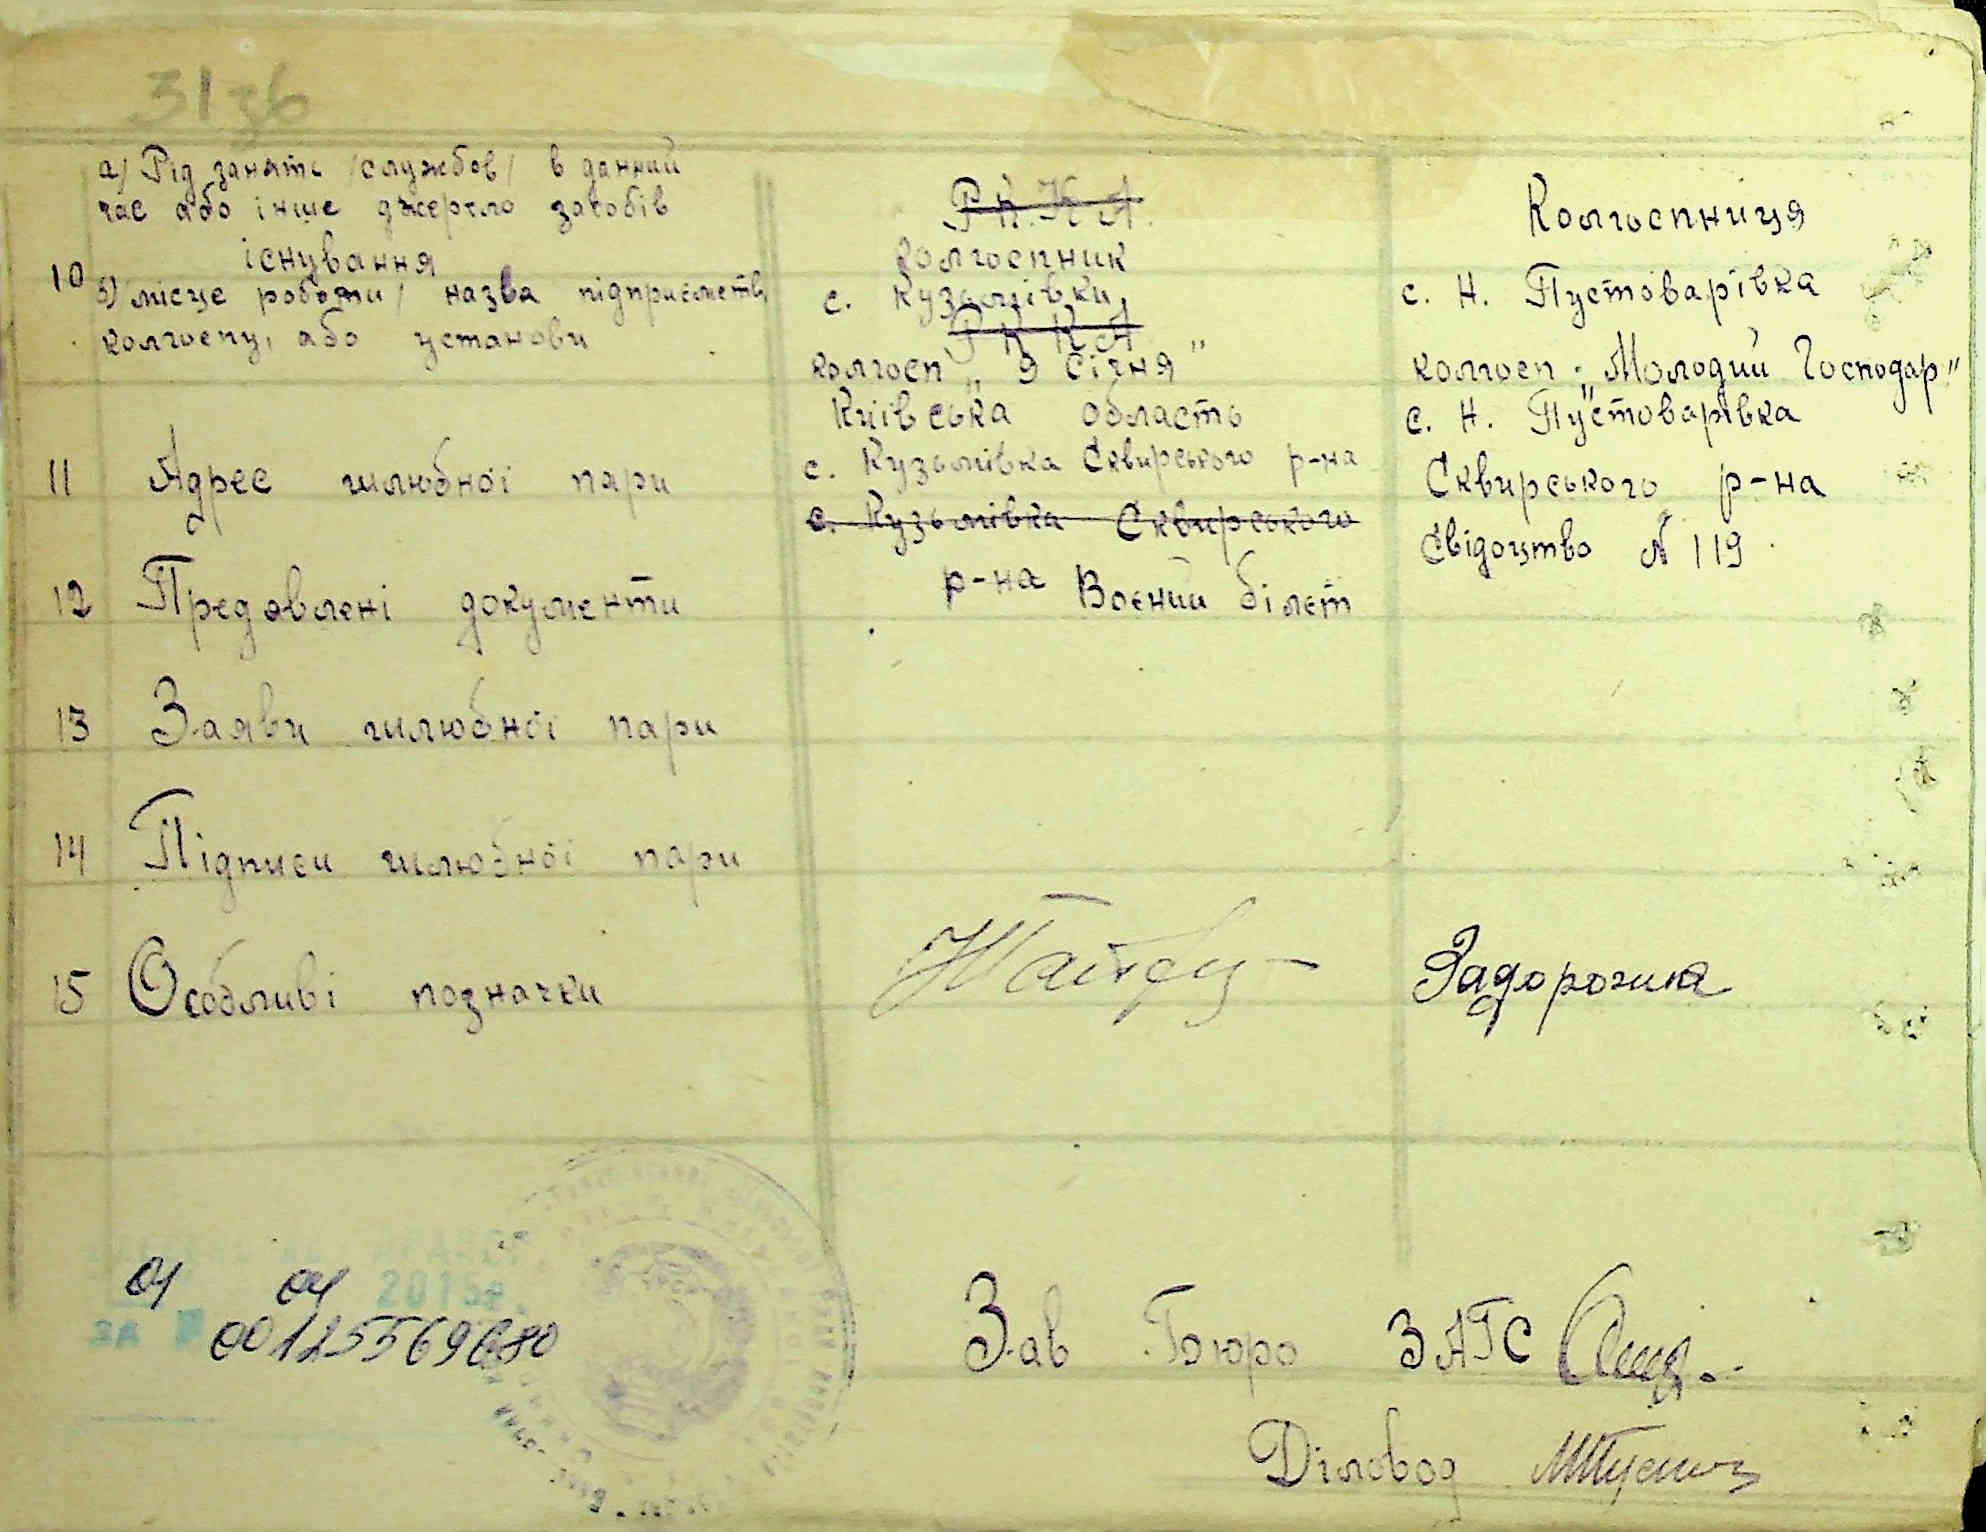 31зв
а/ Рід занять /службов/ в данний
час або інше джерело засобів
існування
10
б) місце роботи/ назва підприємств,
колгоспу, або установи
Р.К.К.А.
колгоспник
с. Кузьмівки,
Р К К А
колгосп „9 Січня"
Колгоспниця
с. Н. Пустоварівка
колгосп „Молодий Господар"
11 Адрес шлюбної пари
Київська область
с. Кузьмівка Сквирського р-на
с. Кузьмівка Сквирського
р-на
с. Н. Пустоварівка
Сквирського р-на
12 Предявлені документи
Воєний білєт
Свідоцтво № 119
13 Заяви шлюбної пари
14 Підписи шлюбної пари
15 Особливі позначки
Задорожна
2015р.
ЗА
00125569680
Зав Бюро ЗАГС
Діловод